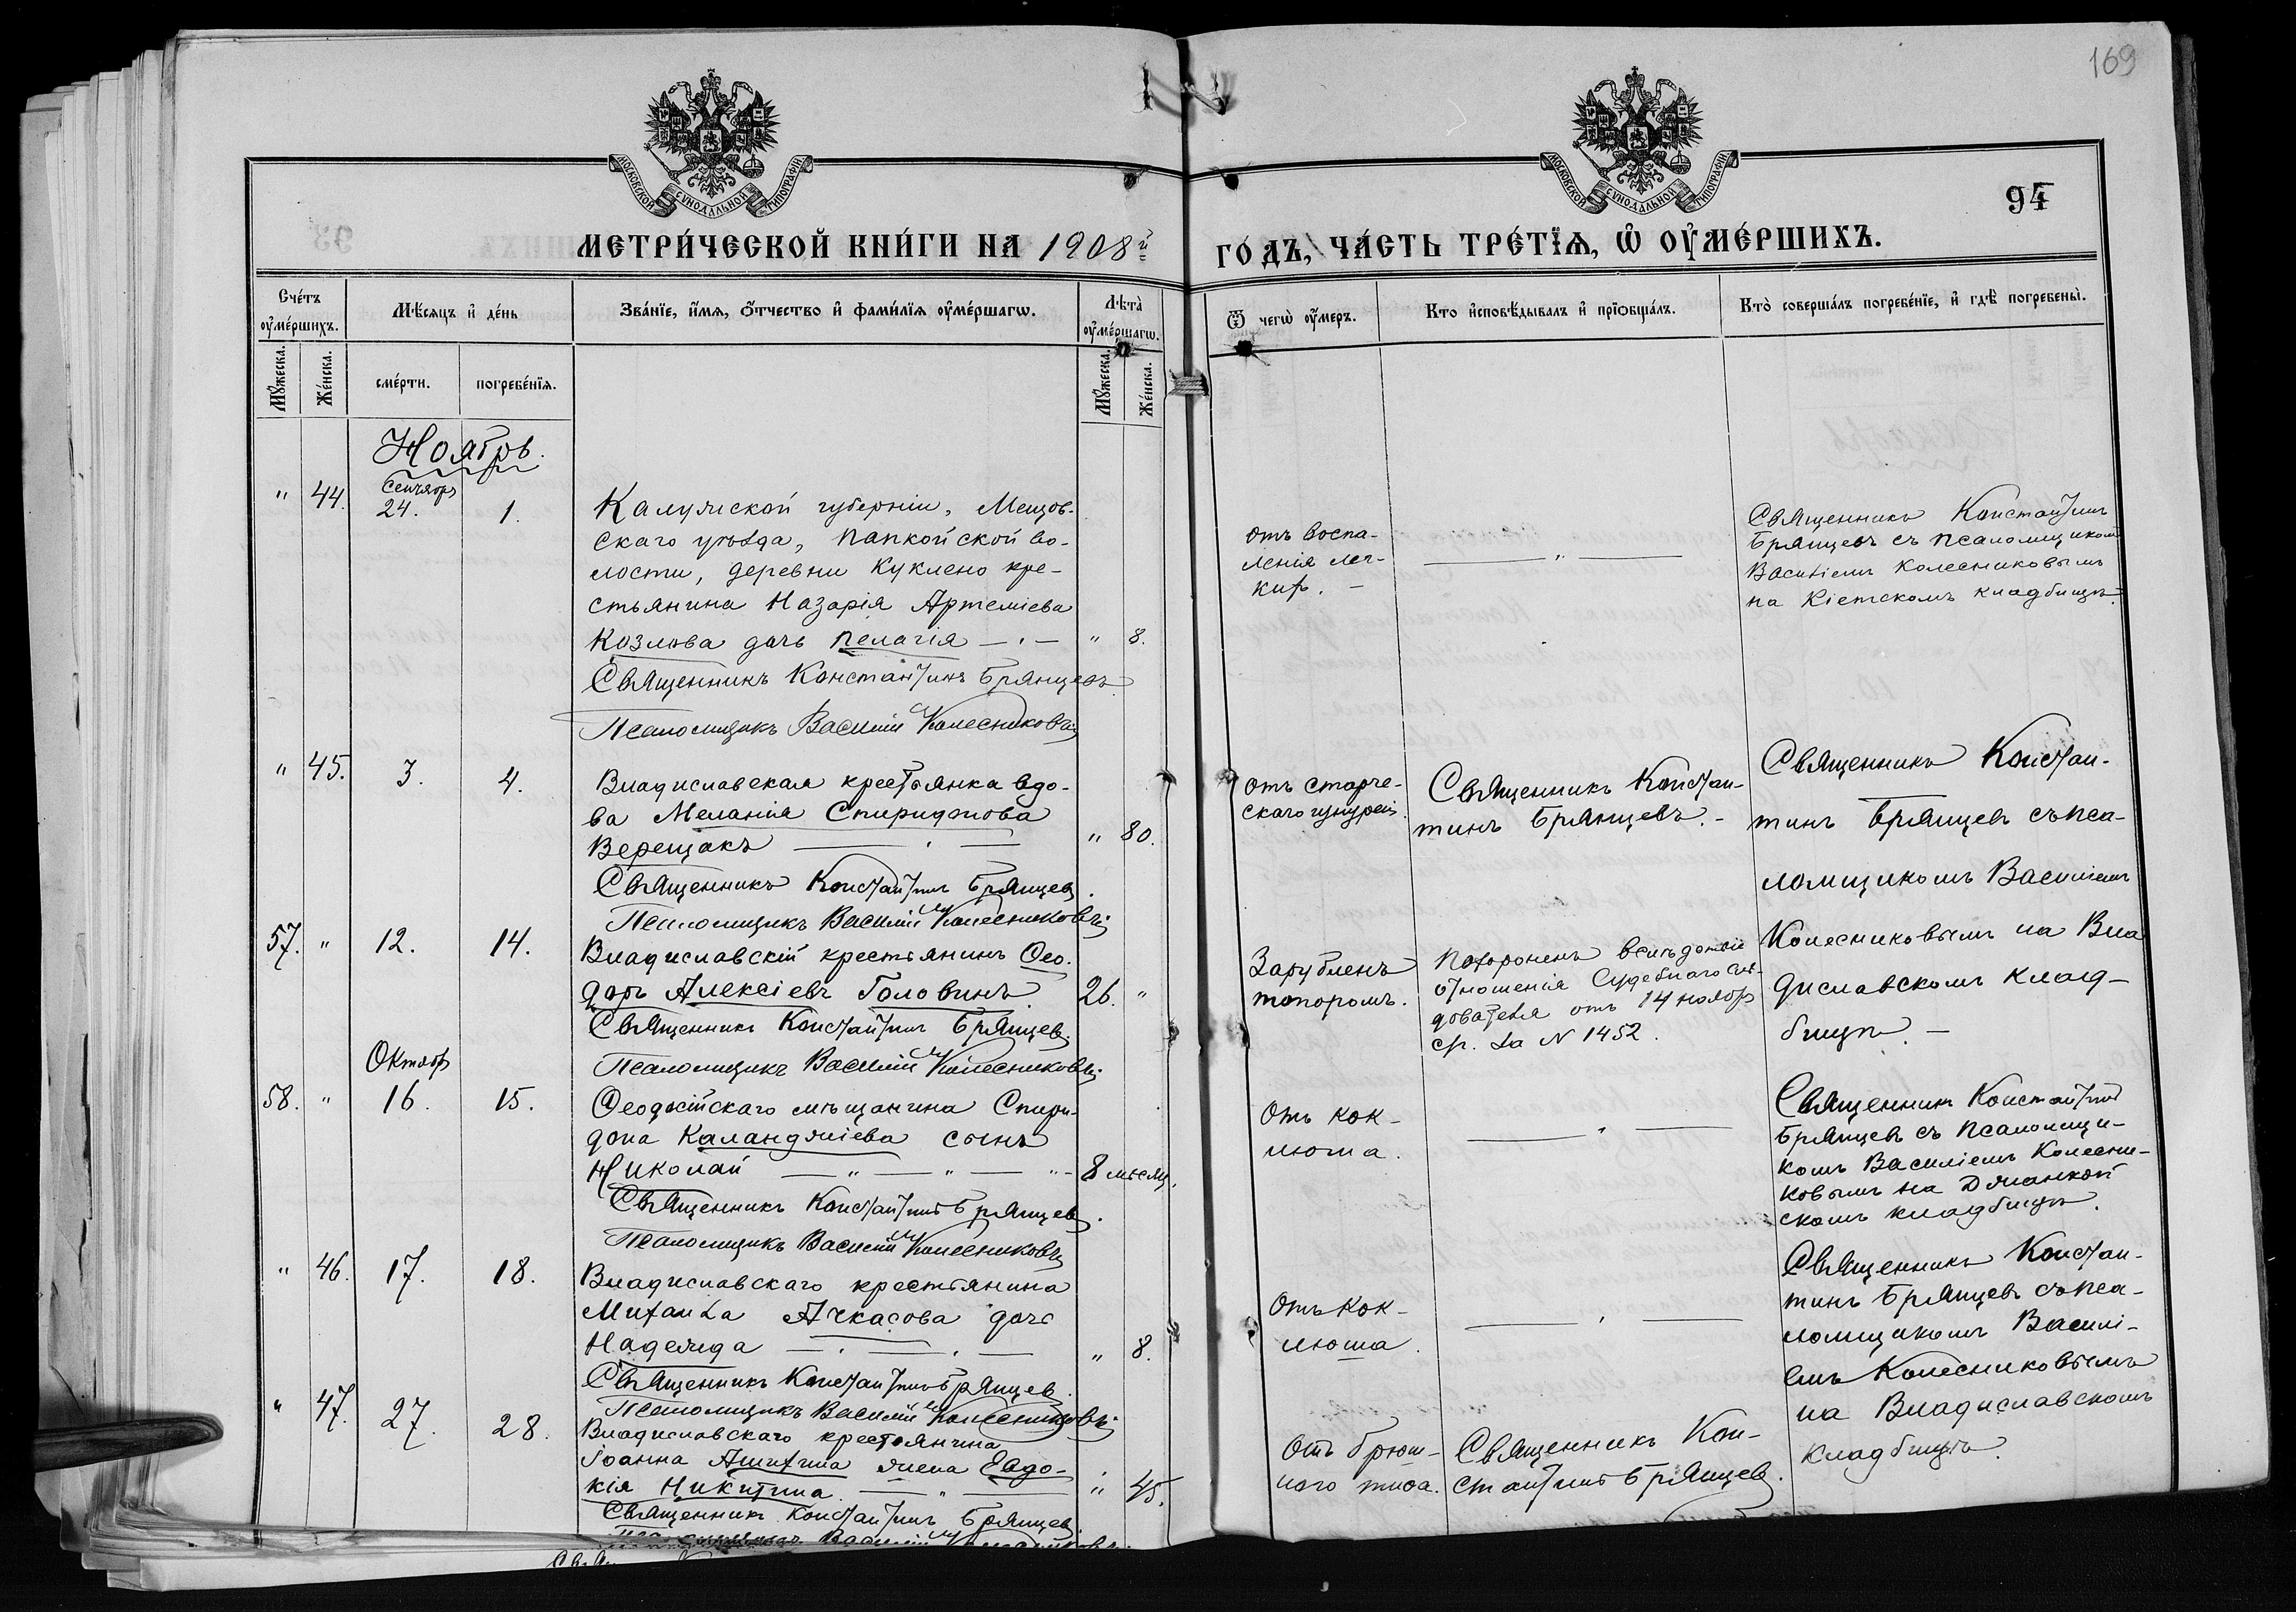 169
МОСКОВСКОЙ СѴНОДАЛЬНОЙ ТИПОГРАФІИ
МОСКОВСКОЙ СѴНОДАЛЬНОЙ ТИПОГРАФІИ
94
МЕТРИ́ЧЕСКОЙ КНИ́ГИ НА 1908й
ГО́ДЪ, ЧА́СТЬ ТРЕ́ТЇѦ, Ѽ ОУМЕ́РШИХЪ.
Сче́тъ оуме́ршихъ.
Мѣ́сяцъ и де́нь
Зва́нїе, и́мѧ, ѻ́тчество и фами́лїѧ оуме́ршагѡ.
Лѣта̀ оуме́ршагѡ.
Ѿ чегѡ̀ оу́меръ.
Кто исповѣ́дывалъ и прїѻбща́лъ.
Кто̀ соверша́лъ погребе́нїе, и гдѣ̀ погребены̀.
Мꙋ́жеска.
Же́нска.
сме́рти.
погребе́нїѧ.
Мꙋ́жеска.
Же́нска.
Ноябрь.
" 44. Сентябрь 24. 1.
Калужской губерніи, Мещов-
скаго уѣзда, Папкойской во-
лости, деревни Куклено кре-
стьянина Назарія Артеміева
Козлова дочь Пелагія — " — " 8.
Священникъ Константинъ Брянцевъ.
Псаломщикъ Василій Колесниковъ
отъ воспа-
ленія лег-
кихъ. –
— " —
Священникъ Константинъ
Брянцевъ съ псаломщикомъ
Василіемъ Колесниковымъ
на Кіетскомъ кладбищѣ.
" 45. 3. 4.
Владиславская крестьянка вдо-
ва Меланія Спиридонова
Верещакъ — " — " 80.
Священникъ Константинъ Брянцевъ.
Псаломщикъ Василій Колесниковъ
отъ старче-
скаго
Священникъ Констан-
тинъ Брянцевъ. –
Священникъ Констан-
тинъ Брянцевъ съ пса-
ломщикомъ Василіемъ
Колесниковымъ на Вла
диславскомъ клад-
бищѣ. –
57. " 12. 14.
Владиславскій крестьянинъ Ѳео-
доръ Алексіевъ Головинъ. 26. "
Священникъ Константинъ Брянцевъ
Псаломщикъ Василій Колесниковъ
Зарубленъ
топоромъ.
Похороненъ вслѣдствіе
отношенія Судебнаго Слѣ-
дователя отъ 14 ноября
с/г. за N 1452.
58. " Октябрь 16. 15.
Ѳеодосійскаго мѣщанина Спири-
дона Каланджіева сынъ
Николай — " — " — " - 8 мѣсяц.
Священникъ Константинъ Брянцевъ.
Псаломщикъ Василій Колесниковъ
Отъ кок-
люша.
— " —
Священникъ Константинъ
Брянцевъ съ псаломщи-
комъ Василіемъ Колесни-
ковымъ на Джанкой
скомъ кладбищѣ.
" 46. 17. 18.
Владиславскаго крестьянина
Михаила Ачкасова дочь
Надежда — " — " — " 8.
Священникъ Константинъ Брянцевъ.
Псаломщикъ Василій Колесниковъ
Отъ кок-
люша.
— " —
Священникъ Констан-
тинъ Брянцевъ съ пса-
ломщикомъ Василі-
емъ Колесниковымъ
на Владиславскомъ
кладбищѣ.
" 47. 27. 28.
Владиславскаго крестьянина
Іоанна жена Евдо-
кія Никитина — " — " 45.
Священникъ Константинъ Брянцевъ.
Псаломщикъ Василій Колесниковъ.
Отъ брюш-
ного тифа.
Священникъ Кон-
стантинъ Брянцевъ.